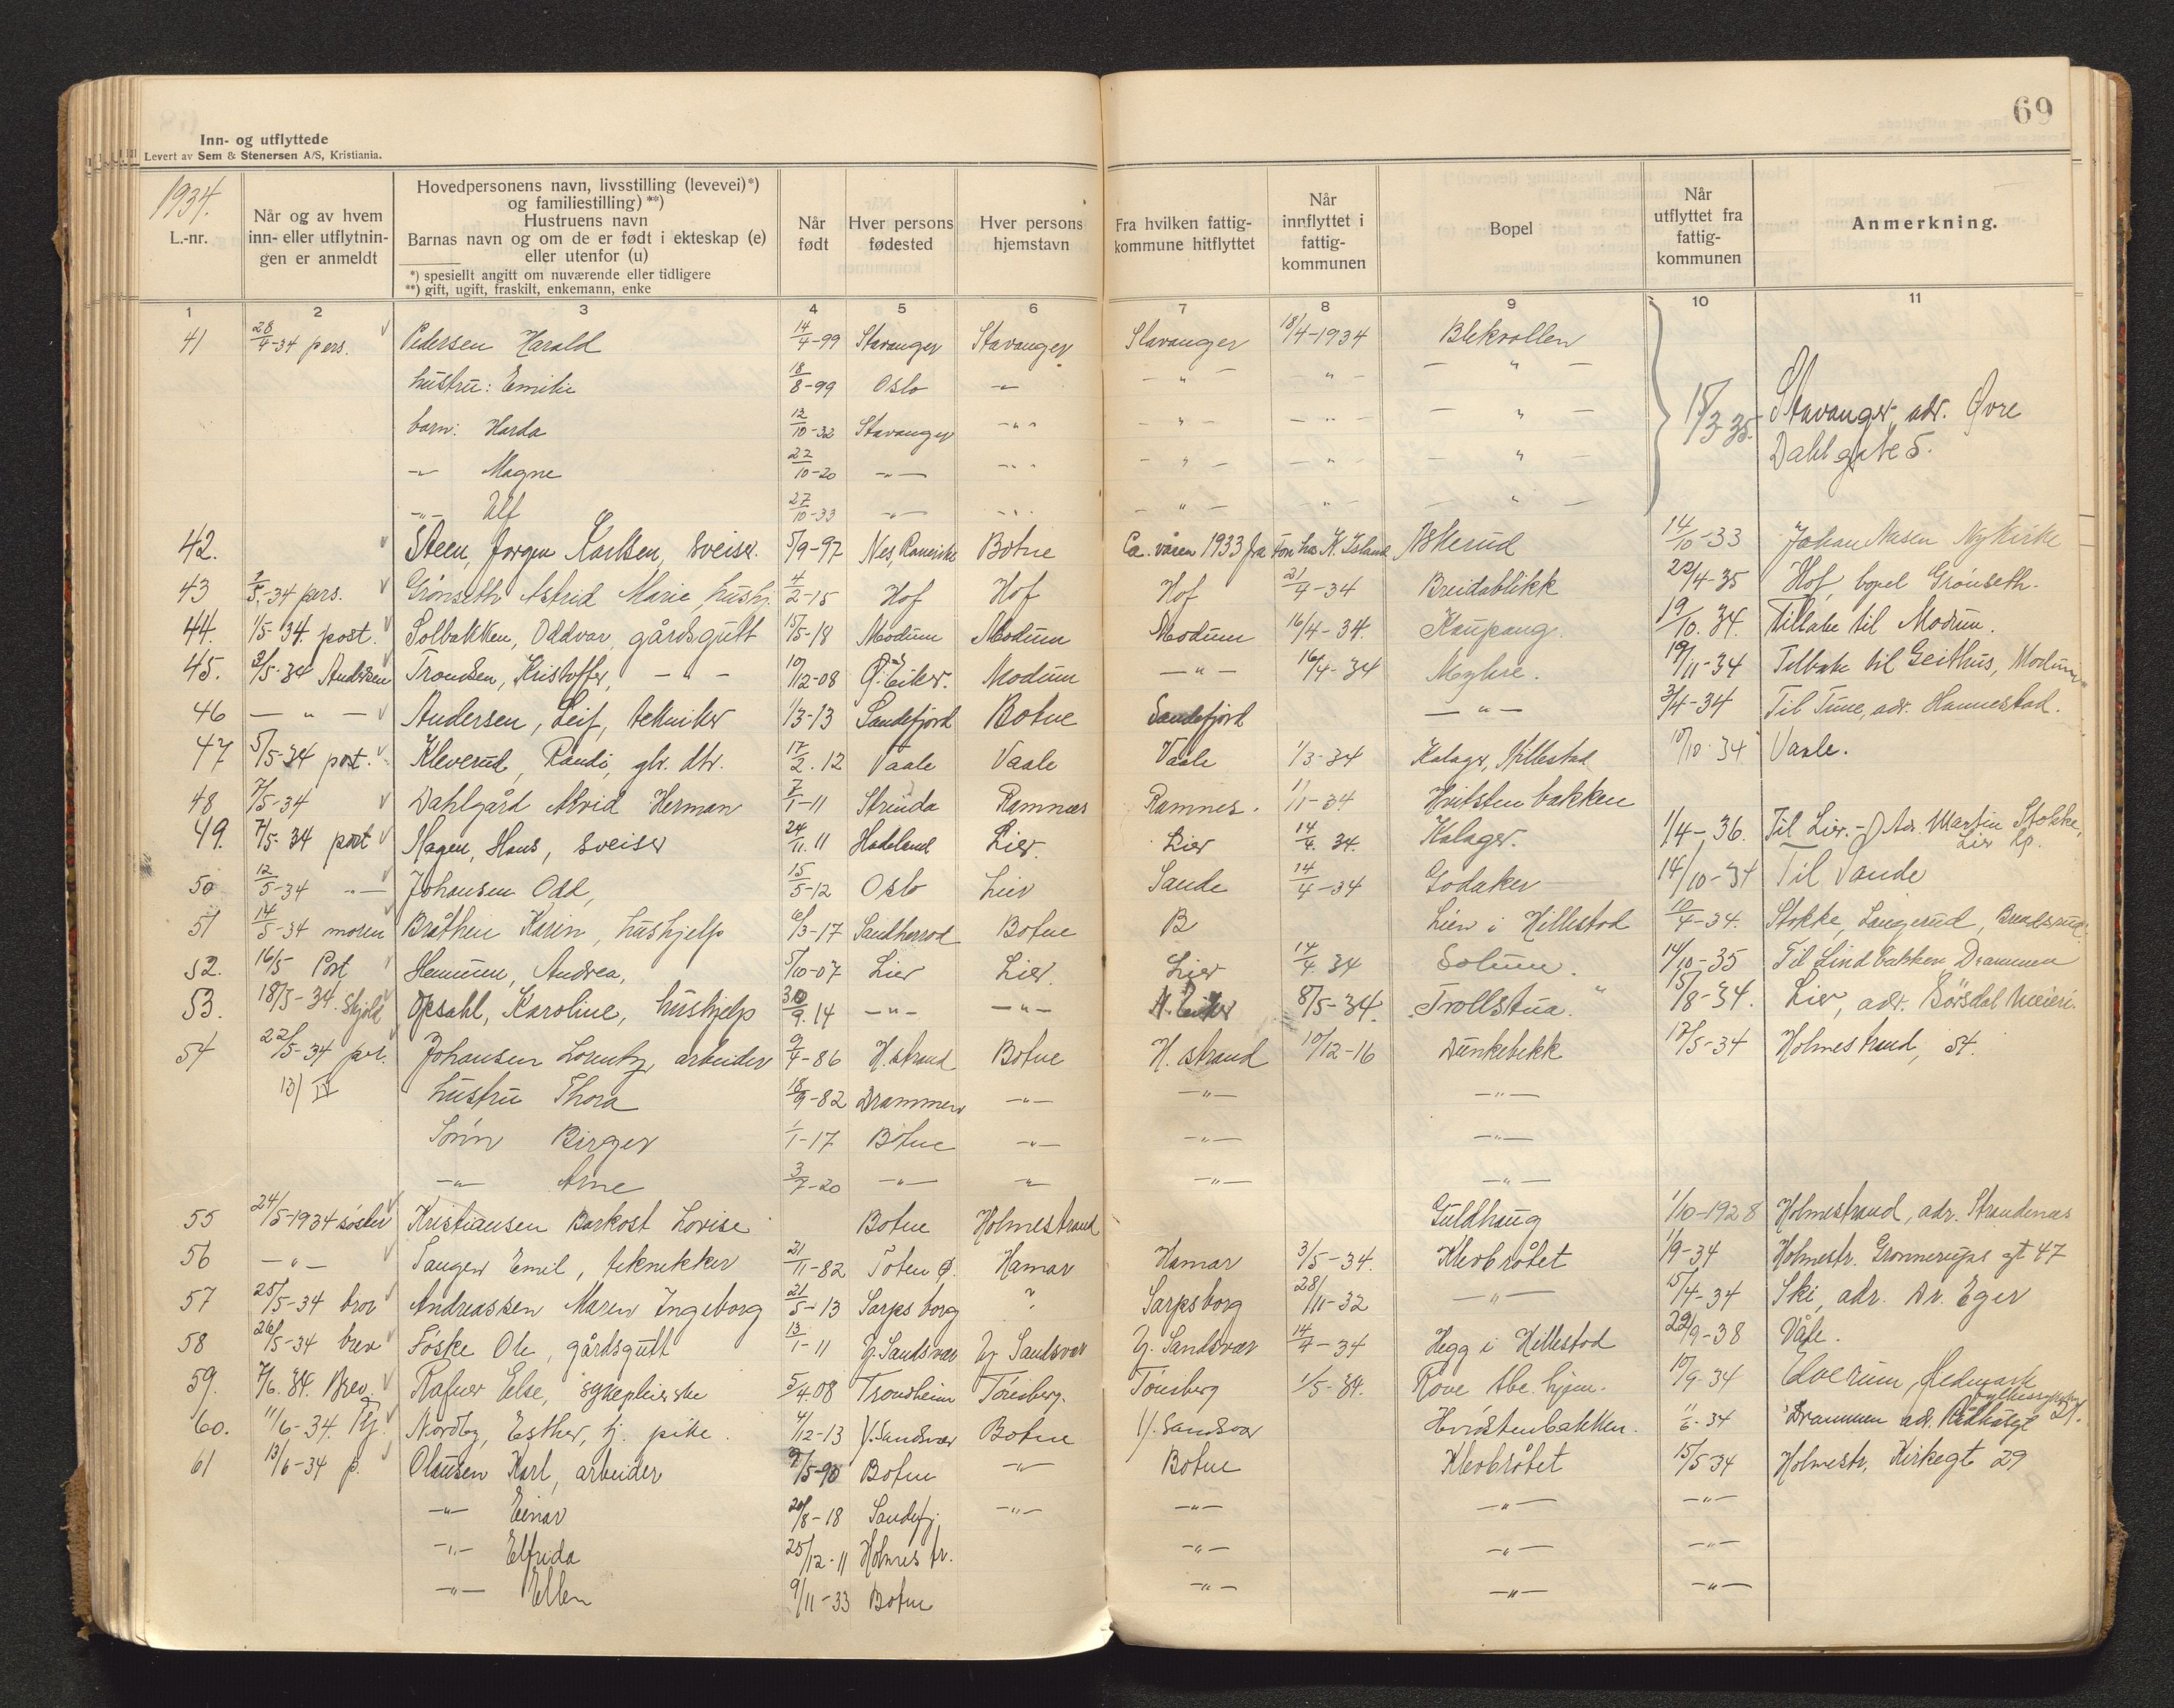 69
Inn- og utflyttede
Levert av Sem & Stenersen A/S, Kristiania.
1934.
L.-nr.
Når og av hvem inn- eller utflytnin-gen er anmeldt
Hovedpersonens navn, livsstilling (levevei)*) og familiestilling) **)
Hustruens navn
Barnas navn og om de er født i ekteskap (e) eller utenfor (u)
*) spesiellt angitt om nuværende eller tidligere
**) gift, ugift, fraskilt, enkemann, enke
Når født
Hver persons fødested
Hver persons hjemstavn
Fra hvilken fattig-kommune hitflyttet
Når innflyttet i fattig-kommunen
Bopel
Når utflyttet fra fattig-kommunen
Anmerkning.
1 2 3 4 5 6 7 8 9 10 11
41 28/4-34 pers. Pedersen Harald 14/4-99 Stavanger Stavanger Stavanger 18/4-1934 Blekvollen
hustru: Emilie 18/8-99 Oslo -"- -"- -"- -"-
barn: Harda 12/10-32 Stavanger -"- -"- -"- -"- 15/3-35. Stavanger, adr. Øvre
-"- Magne 22/10-20 -"- -"- -"- -"- -"- Dahlgate 5.
-"- Ulf 27/10-33 -"- -"- -"- -"- -"-
42. Steen, Jørgen Karlsen, sveiser. 5/9-97 Nes, Romerike Botne Ca. våren 1933 fra K. Island Askerud 14/10-33 Johan Nykirke
43 2/5-34 pers. Grønseth Astrid Marie hushj. 4/2-15 Hof Hof Hof 21/4-34 Breidablikk 22/4-35 Hof, bopel Grønseth.
44. 1/5-34. post. Solbakken, Oddvar, gårdsgutt 15/5-18 Modum Modum Modum 16/4-34. Kaupang. 19/10. 34. Tilbake til Modum.
45. 3/5-34 Andersen Tromsen, Kristoffer, -"- 10/12-08 Ø. Eiker. Modum -"- 16/4-34 Myhre. 19/11-34 Tilbake til Geithus, Modum
46 -"- Andersen, Leif, tekniker 1/3-13 Sandefjord Botne Sandefjord -"- 3/4-34 Til Tune, adr. Hannestad.
47 5/5-34 post. Kleverud, Randi, gbr. dtr. 17/2. 12 Vaale Vaale Vaale 1/3-34 Kalager, Hillestad 10/10-34 Vaale.
48 7/5-34 Dahlgård Arvid Herman 7/1-11 Strinda Ramnæs Ramnes. 1/1-34 Hvitstenbakken
49. 7/5-34 post Hagen, Hans, sveiser 24/11. 11 Hadeland Lier. Lier 14/4. 34. Kalager. 1/4-36. Til Lier. Adr. Martin Stokke, Lier Lp.
50 12/5-34 -"- Johansen Odd, 15/5-12 Oslo Lier Sande 14/4-34 Godaker 14/10-34 Til Sande
51 14/5-34 moren Bråthen Karin, hushjelp 6/3-17 Sandherred Botne B Lien i Hillestad 10/4-34. Stokke, Langerud,
52. 16/5 Post Hemmen, Andrea, 5/10-07 Lier Lier. Lier 14/4 34 Solum. 14/10-35 Til Lindbakken, Drammen
53. 18/5-34. Skjold Opsahl, Karoline, hushjelp 30/9. 14 -"- -"- N. Eiker 8/5-34. Trollstua. 15/8-34. Lier, adr. meieri.
54 22/5-34 per. Johansen Lorentz, arbeider 9/4-86 H.strand Botne H. strand 10/12-16 Dunkebekk 12/5-34 Holmestrand, 54.
13/IV hustru Thora 18/9-82 Drammen -"- -"- -"-
Sønn Birger 1/1-17 Botne -"- -"- -"-
-"- Arne 3/7-20 -"- -"- -"- -"-
55 24/5-1934 søster Kristiansen Barkost Lovise Botne Holmestrand Guldhaug 1/10-1928 Holmestrand, adr. Strandenæs
56 -"- Tangen Emil, teknikker 21/11-82 Toten Ø. Hamar Hamar 3/5-34. Klevbråtet 1/9-34 Holmestr. Gronnerups gt 47
57 25/5-34 brev Andreassen Maren Ingeborg 21/5-13 Sarpsborg ? Sarpsborg 28/11-32 -"- 15/4-34 Ski, adr. Dr. Eger
58 26/5-34 brev Foske Ole, gårdsgutt 13/1-11 Y. Sandsvær Y. Sandsvær Y. Sandsvær 14/4-34 Hegg i Hillestad 22/9-38 Våle.
59. 7/6. 34. Brev. Rafner Else, sykepleierske 5/4.08 Trondheim Tønsberg. Tønsberg 1/5-34. Rove tbc. hjem. 10/9-34 Elverum, Hedmark
60. 11/6-34. Nordby, Esther, tj. pike. 4/12-13 Y. Sandsvær Botne Y. Sandsvær Hvidstenbakken. 11/6-34 Drammen adr. Rådhusgt 21.
61 13/6-34 p. Olausen Karl, arbeider 9/5-90 Botne -"- Botne Klevbråtet 15/5 34 Holmestr. Kirkegt 29
-"- Einar 20/8-18 Sandefj. -"- -"- -"- -"-
-"- Elfrida 25/12-11 Holmestr. -"- -"- -"-
-"- Ellen 9/11-33 Botne -"- -"- -"-